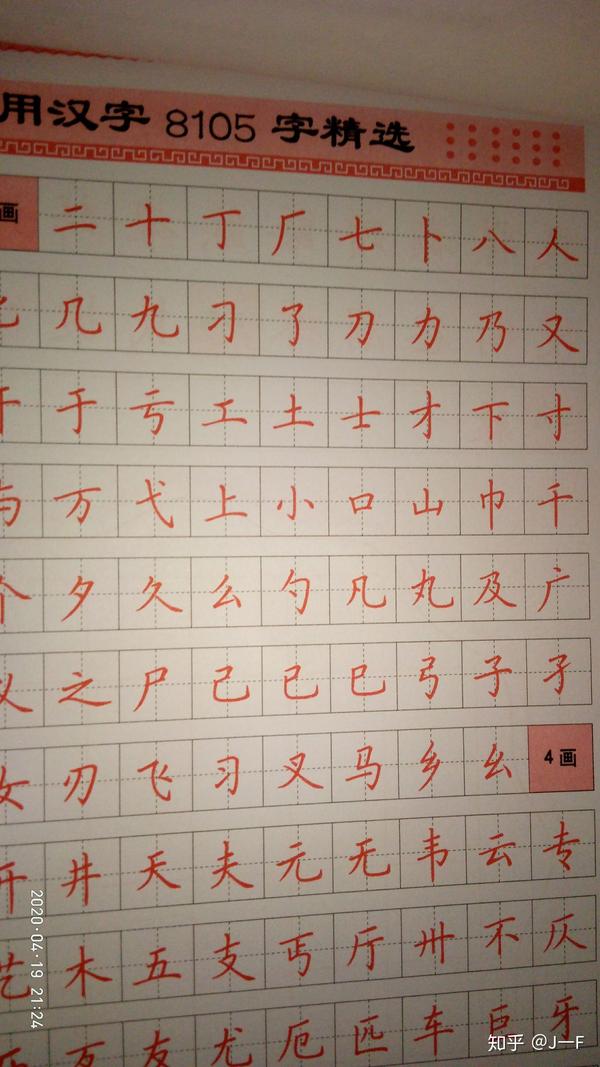 用汉字 8105 字精选
画 二 十 丁 厂 七 卜 八 人
几 九 刁 了 刀 力 乃 又
于 亏 工 土 士 才 下 寸
与 万 弋 上 小 口 山 巾 千
个 夕 久 么 勺 凡 丸 及 广
义 之 尸 己 已 巳 弓 子 孑
女 刃 飞 习 叉 马 乡 幺 4画
开 井 天 夫 元 无 韦 云 专
艺 木 五 支 丐 厅 卅 不 仄
友 尤 厄 匹 车 巨 牙
2020·04·19 21:24
知乎 @J一F